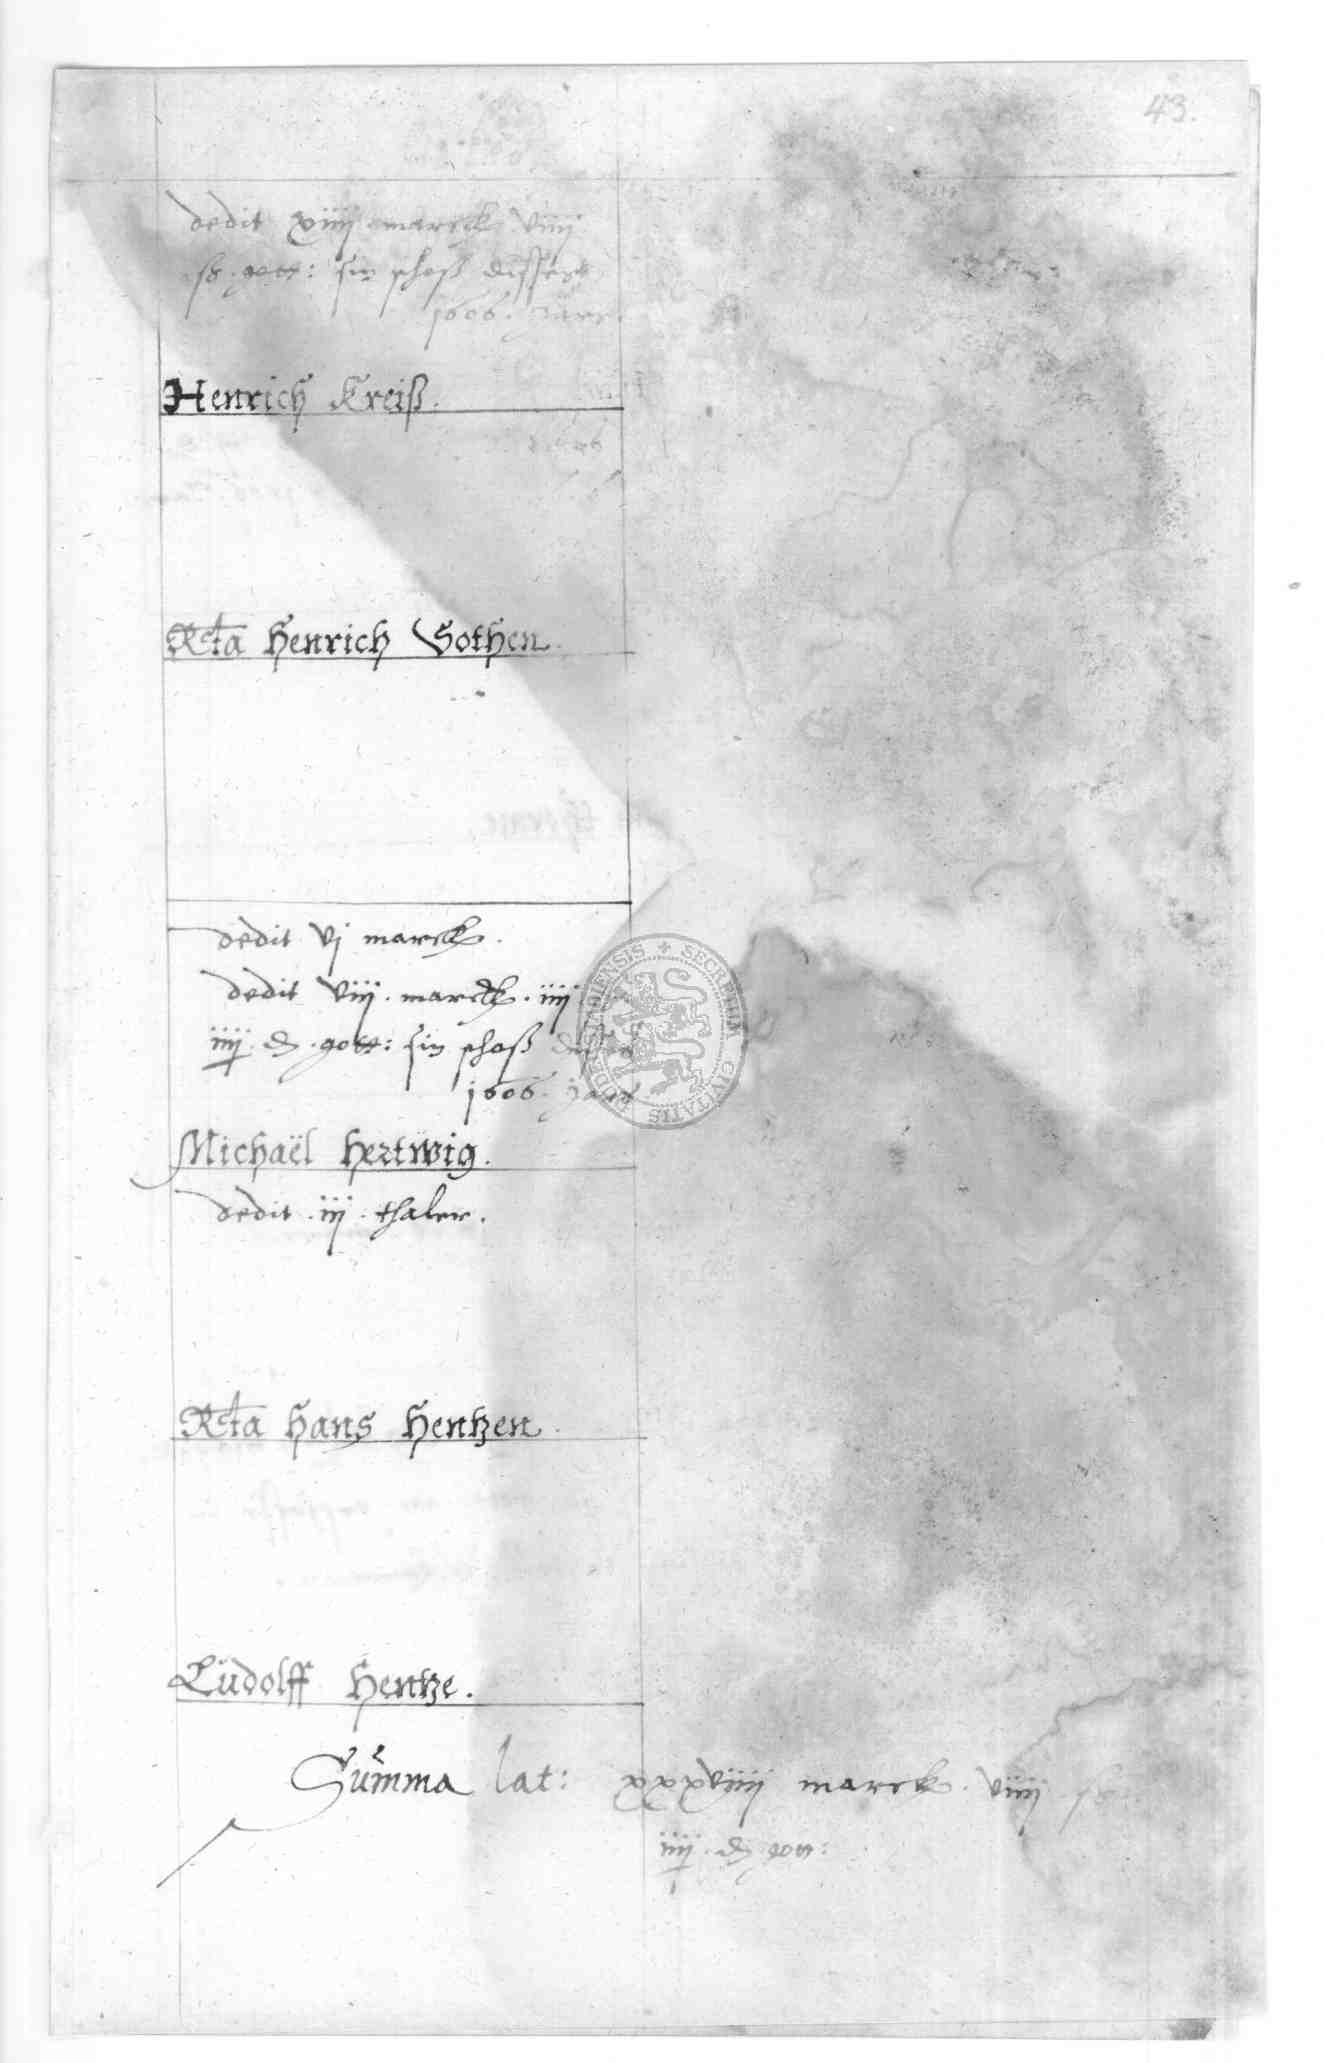 43.
dedit xiiij marck viiij
ß. gott: sin schoß disses
1606. Jars.
Henrich Kreiß.
Rcta Henrich Gothen.
dedit vj marck.
dedit viij. marck. iiij
iiij. d. gott: sin schoß disses
1606. Jars
Michaël Hertwig.
dedit. iij. thaler.
Rcta Hans Hentzen.
Lüdolff Hentze.
Summa lat: xxxviiij marck. viiij ß
iiij. d gott:
SECRETUM CIVITATIS DUDERSTADIENSIS